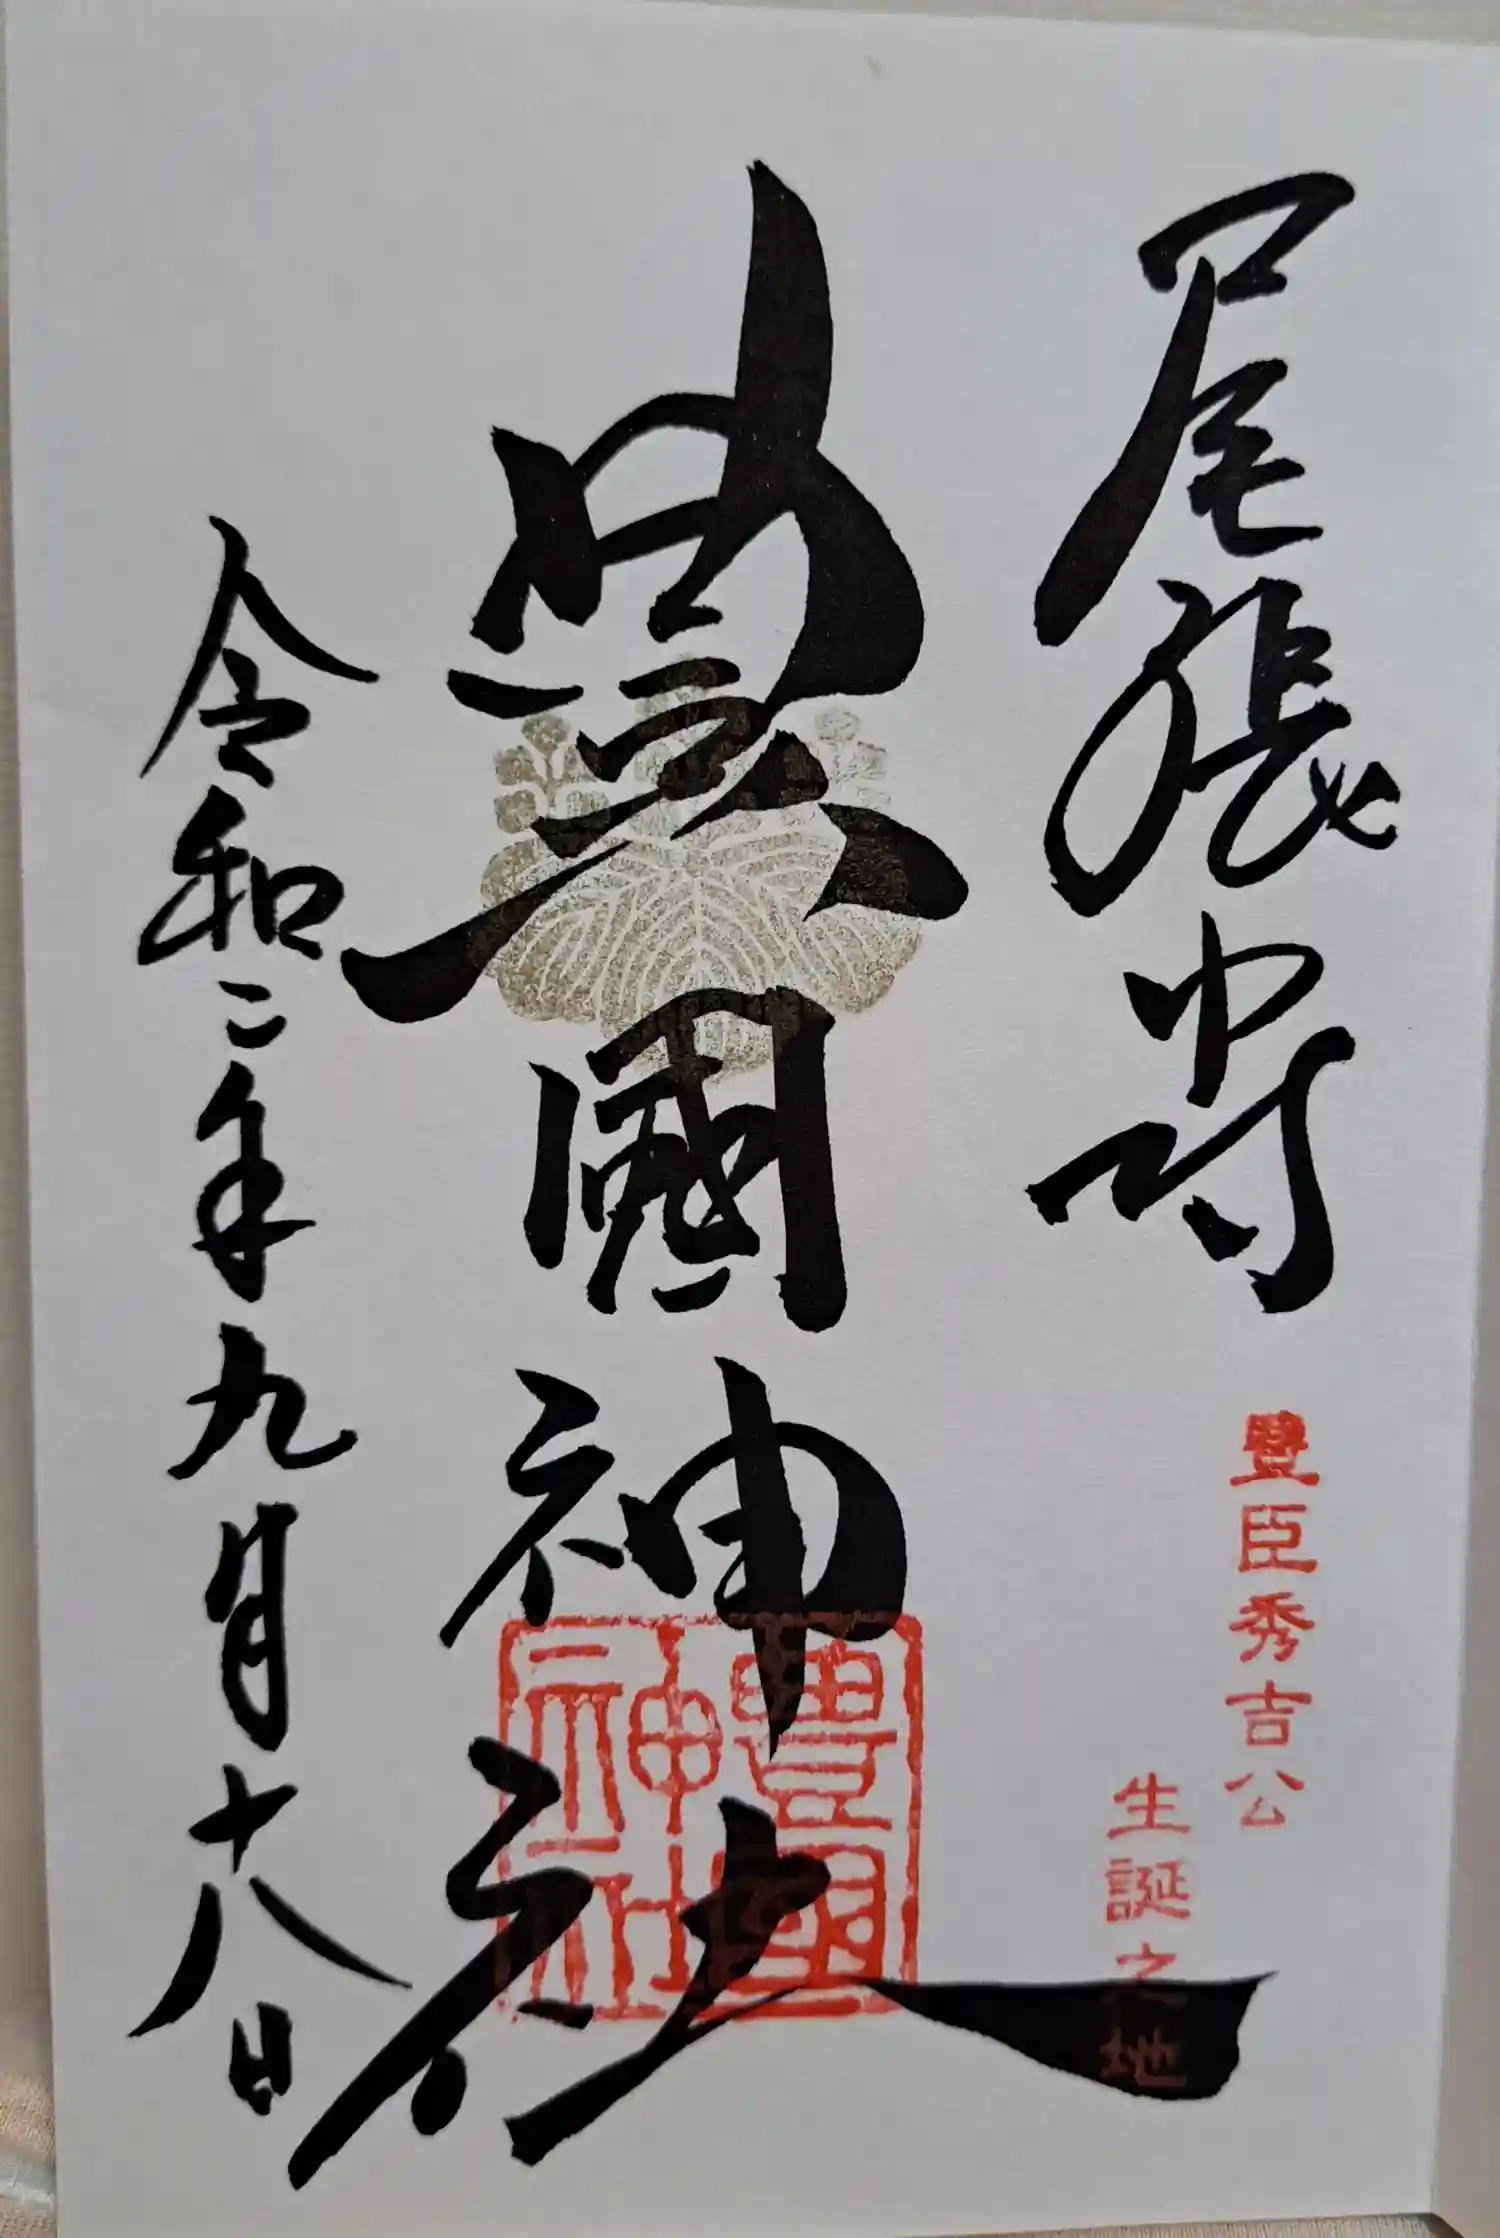 尾張中村
豐臣秀吉公
生誕之地
豊國神社
豊國神社
令和二年九月十八日